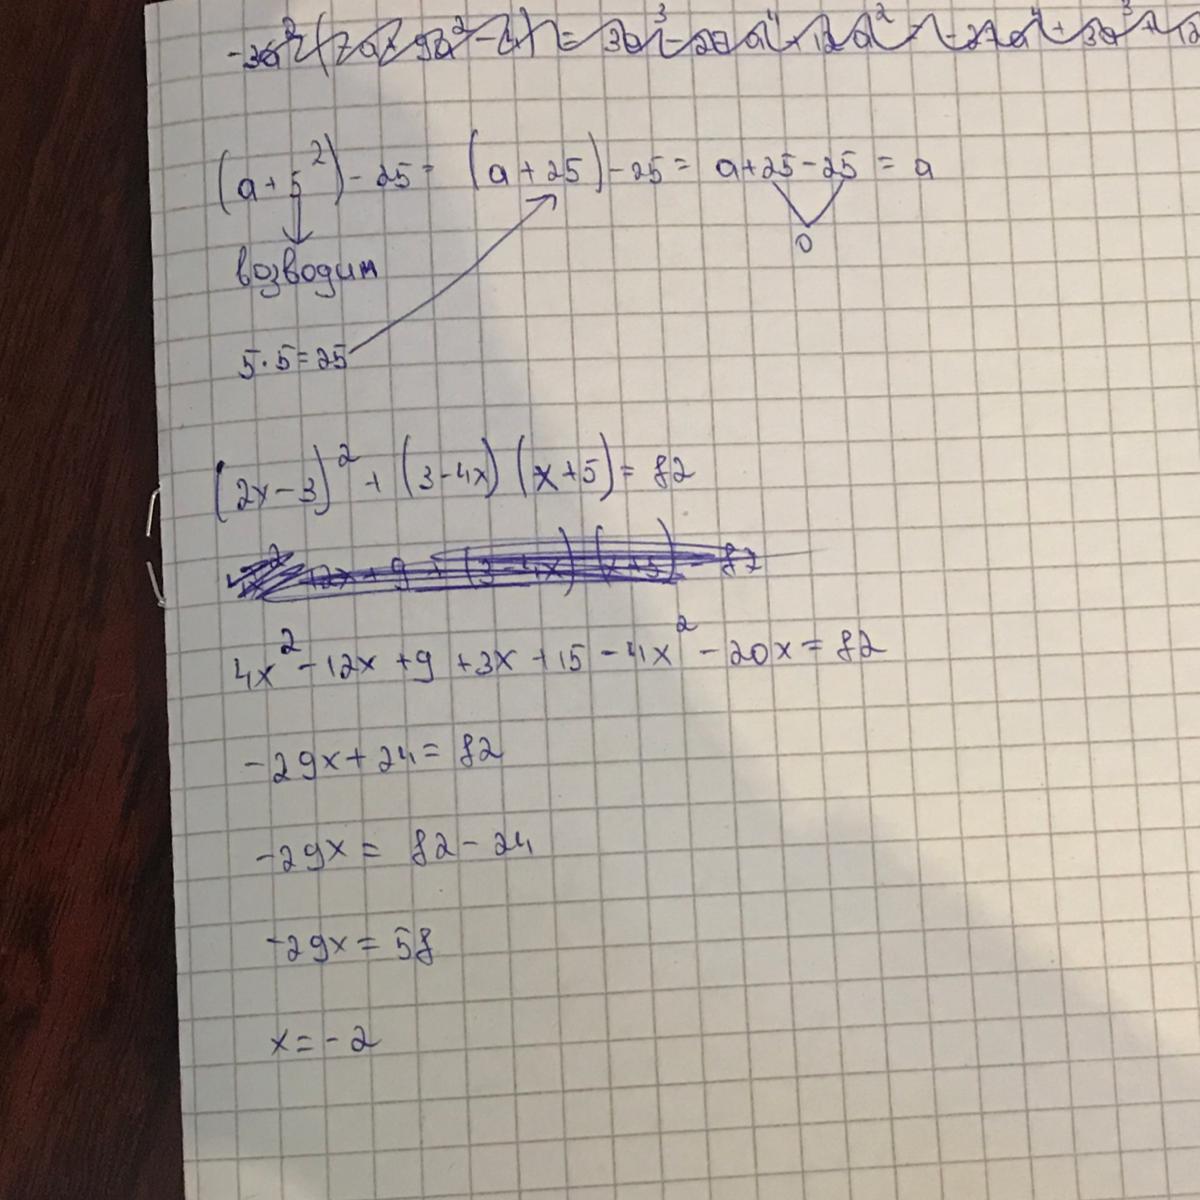 (a+5²)-25= (a+25)-25= a+25-25 = a
0
возводим
5·5=25
(2x-3)² + (3-4x) (x+5)= 82
4x² -12x +9 +3x +15 -4x² -20x = 82
-29x+24= 82
-29x = 82-24
-29x = 58
x=-2